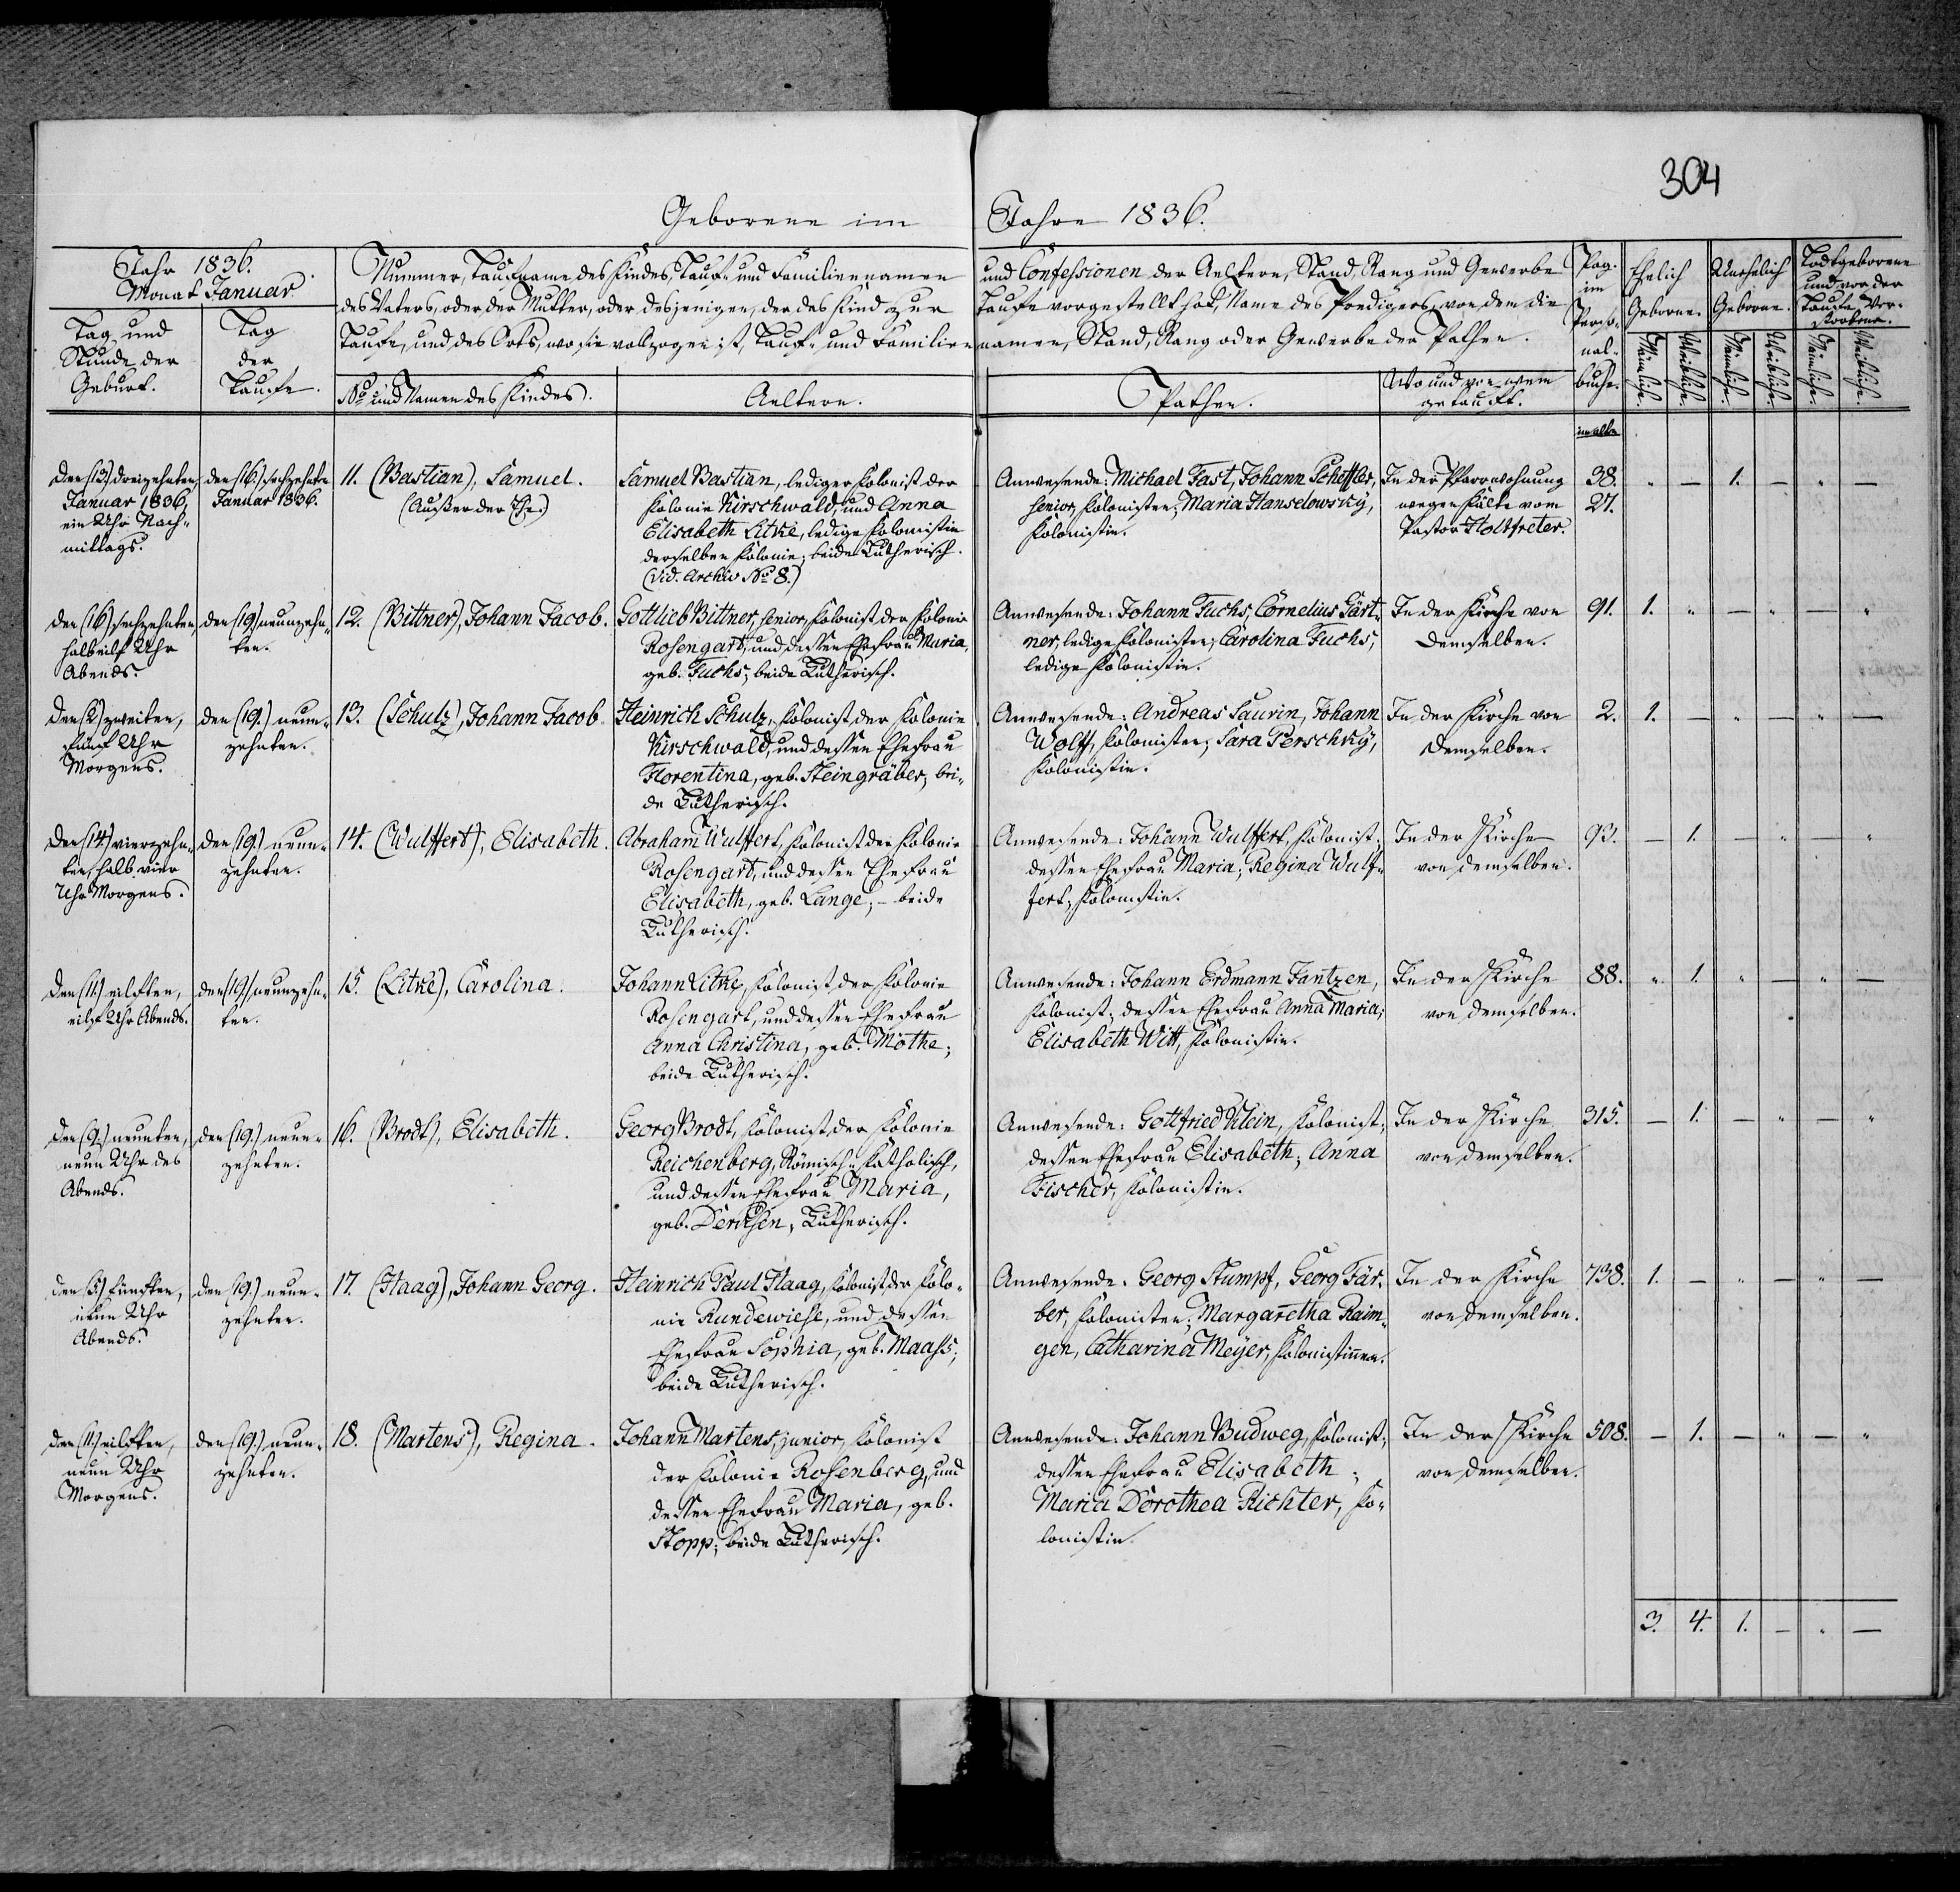 304
Geborene im Jahre 1836.
Jahr 1836.
Monat Januar
Tag und
Stunde der
Geburt.
Tag
der
Taufe.
Nummer, Taufname des Kindes, Tauf- und Familiennamen
des Vaters, oder der Mutter, oder desjenigen, der das Kind zur
Taufe, und des Orts, wo sie vollzogen ist, Tauf- und Familien
No und Namen des Kindes.
Aeltern.
und Confessionen der Aeltern, Stand, Rang und Gewerbe
Taufe vorgestellt hat, Name des Predigers, von dem die
namen, Stand, Rang oder Gewerbe der Pathen.
Pathen.
Wo und von wem
getauft.
Pag.
im
Perso-
nal-
buche.
Ehelich
Geborne.
Unehelich
Geborne.
Todtgeborene
und vor der
Taufe Ver-
storbene.
Männliche.
Weibliche.
Männliche.
Weibliche.
Männliche.
Weibliche.
im alten
Den (13) dreizehnten
Januar 1836,
ein Uhr Nach-
mittags.
den (16.) sechzehnten
Januar 1836.
11. (Bastian), Samuel.
(Außer der Ehe.)
Samuel Bastian, lediger Kolonist der
Kolonie Kirschwald, und Anna
Elisabeth Litke, ledige Kolonistin
derselben Kolonie; beide Lutherisch.
(Vid. Archiv No 8.)
Anwesende: Michael Fast, Johann Scheffler,
senior, Kolonisten; Maria Hanselowsky,
Kolonistin.
In der Pfarrwohnung
wegen Kälte vom
Pastor Holtfreter.
38.
27.
" — 1. — " —
Den (16) sechzehnten,
halb eilf Uhr
Abends.
den (19) neunzehn-
ten.
12. (Bittner), Johann Jacob.
Gottlieb Bittner, senior, Kolonist der Kolonie
Rosengart, und dessen Ehefrau Maria,
geb. Fuchs; beide Lutherisch.
Anwesende: Johann Fuchs, Cornelius Gärt-
ner, ledige Kolonisten; Carolina Fuchs,
ledige Kolonistin.
In der Kirche von
demselben.
91. 1. " — " — "
Den (2) zweiten,
fünf Uhr
Morgens.
den (19.) neun-
zehnten.
13. (Schulz), Johann Jacob.
Heinrich Schulz, Kolonist der Kolonie
Kirschwald, und dessen Ehefrau
Florentina, geb. Steingräber; bei-
de Lutherisch.
Anwesende: Andreas Saurin, Johann
Wolff, Kolonisten; Sara Perschky,
Kolonistin.
In der Kirche von
demselben.
2. 1. — " — " —
Den (14) vierzehn-
ten, halb vier
Uhr Morgens.
den (19.) neun-
zehnten.
14. (Wulffert), Elisabeth.
Abraham Wulffert, Kolonist der Kolonie
Rosengart, und dessen Ehefrau
Elisabeth, geb. Lange; - beide
Lutherisch.
Anwesende: Johann Wulffert, Kolonist;
dessen Ehefrau Maria; Regina Wulf-
fert, Kolonistin.
In der Kirche
von demselben.
93. — 1. — " — "
Den (11.) eilften,
eilf Uhr Abends.
den (19) neunzehn-
ten.
15. (Litke), Carolina.
Johann Litke, Kolonist der Kolonie
Rosengart, und dessen Ehefrau
Anna Christina, geb. Mothe;
beide Lutherisch.
Anwesende: Johann Erdmann Jantzen,
Kolonist; dessen Ehefrau Anna Maria;
Elisabeth Witt, Kolonistin.
In der Kirche
von demselben.
88. " 1. " — " —
Den (9.) neunten,
neun Uhr des
Abends.
den (19.) neun-
zehnten.
16. (Brodt), Elisabeth.
Georg Brodt, Kolonist der Kolonie
Reichenberg, Römisch-Katholisch,
und dessen Ehefrau Maria,
geb. Derksen, Lutherisch.
Anwesende: Gottfried Klein, Kolonist;
dessen Ehefrau Elisabeth; Anna
Fischer, Kolonistin.
In der Kirche
von demselben.
315. — 1. — " — "
Den (5.) fünften,
neun Uhr
Abends.
den (19.) neun-
zehnten.
17. (Haag), Johann Georg.
Heinrich Paul Haag, Kolonist der Kolo-
nie Rundewiese, und dessen
Ehefrau Sophia, geb. Maass;
beide Lutherisch.
Anwesende: Georg Stumpf, Georg Fär-
ber, Kolonisten; Margaretha Raim-
gen, Catharina Meyer, Kolonistinnen.
In der Kirche
von demselben.
738. 1. — " — " —
Den (11.) eilften,
neun Uhr
Morgens.
den (19.) neun-
zehnten.
18. (Martens), Regina.
Johann Martens, junior, Kolonist
der Kolonie Rosenberg, und
dessen Ehefrau Maria, geb.
Stopp; beide Lutherisch.
Anwesende: Johann Budweg, Kolonist;
dessen Ehefrau Elisabeth;
Maria Dorothea Richter, Ko-
lonistin.
In der Kirche
von demselben.
508. — 1. — " — "
3. 4. 1. — " —